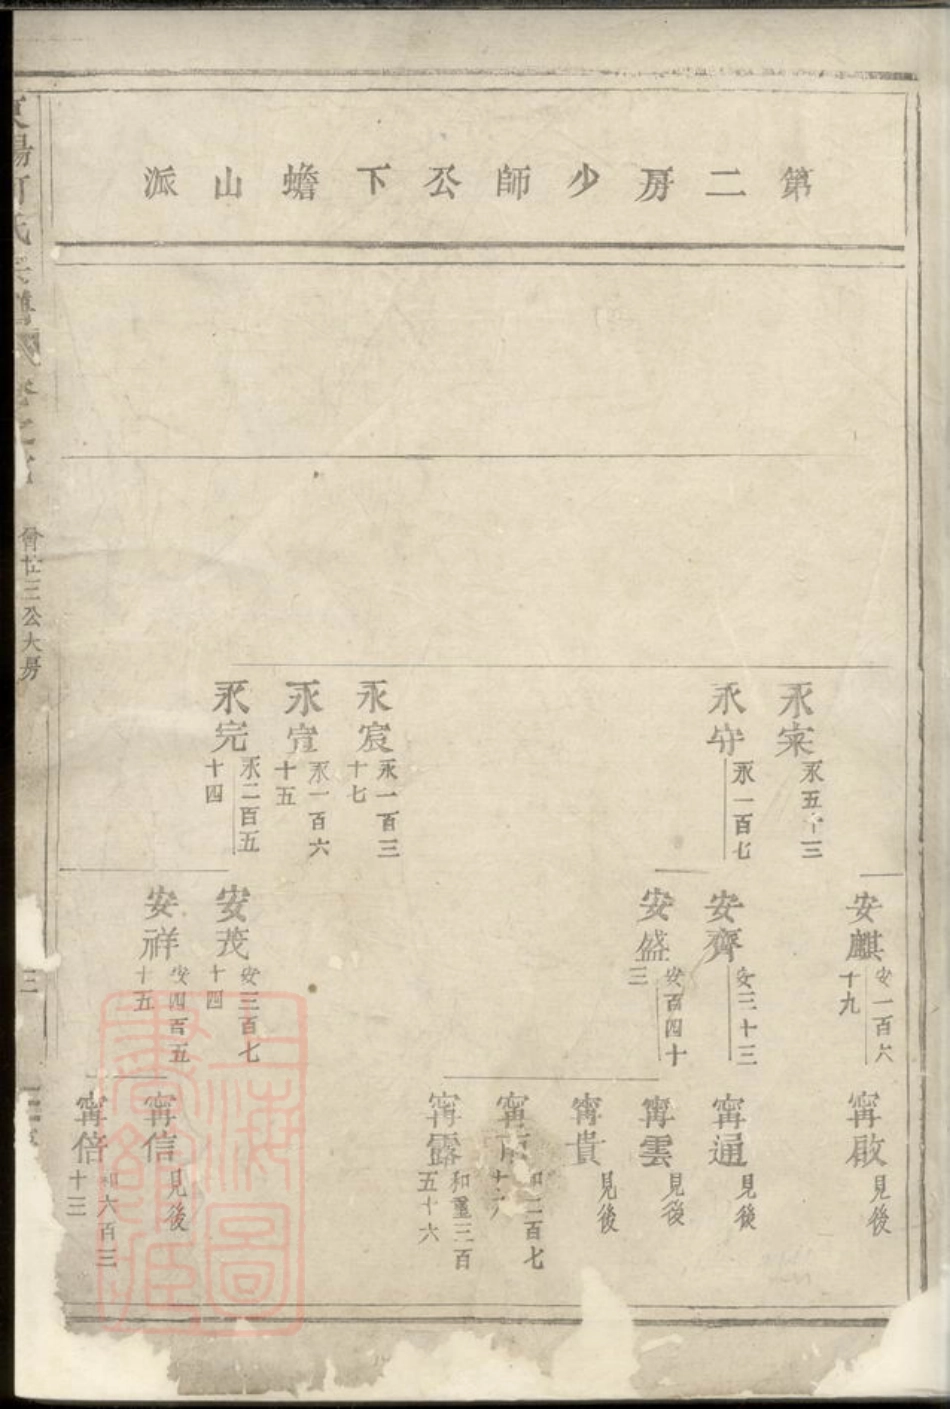 第二房少師公下蟾山派
永寀 永五十三
永守 永一百七
永宸 永一百三十七
永宣 永一百六十五
永完 永二百五十四
安麒 安一百六十九
安齊 安三十三
安盛 安百四十三
安茂 安三百七十四
安祥 安四百五十五
甯啟 見後
甯通 見後
甯雲 見後
甯貴 見後
甯 和二百七十
甯露 和重三百五十六
甯信 見後
甯倍 和六百三十三
曾廿三公大房
三